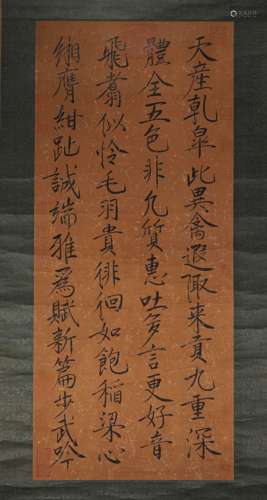 天産乾皐此異禽遐陬来貢九重深
體全五色非凡質惠吐多言更好音
飛翥似憐毛羽貴徘徊如飽稻粱心
緗膺紺趾誠端雅為賦新篇步武吟